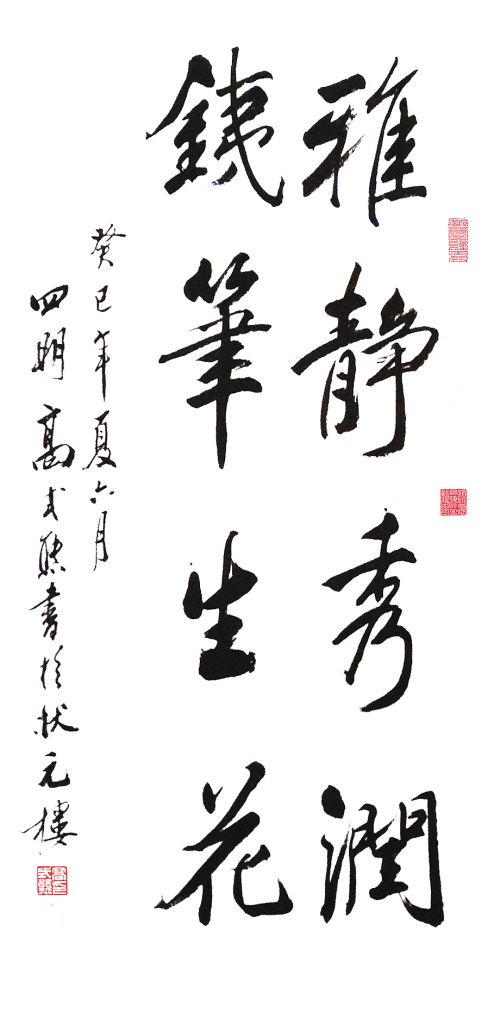 雅靜秀潤
銕筆生花
癸巳年夏六月
四明高式熊書於状元樓